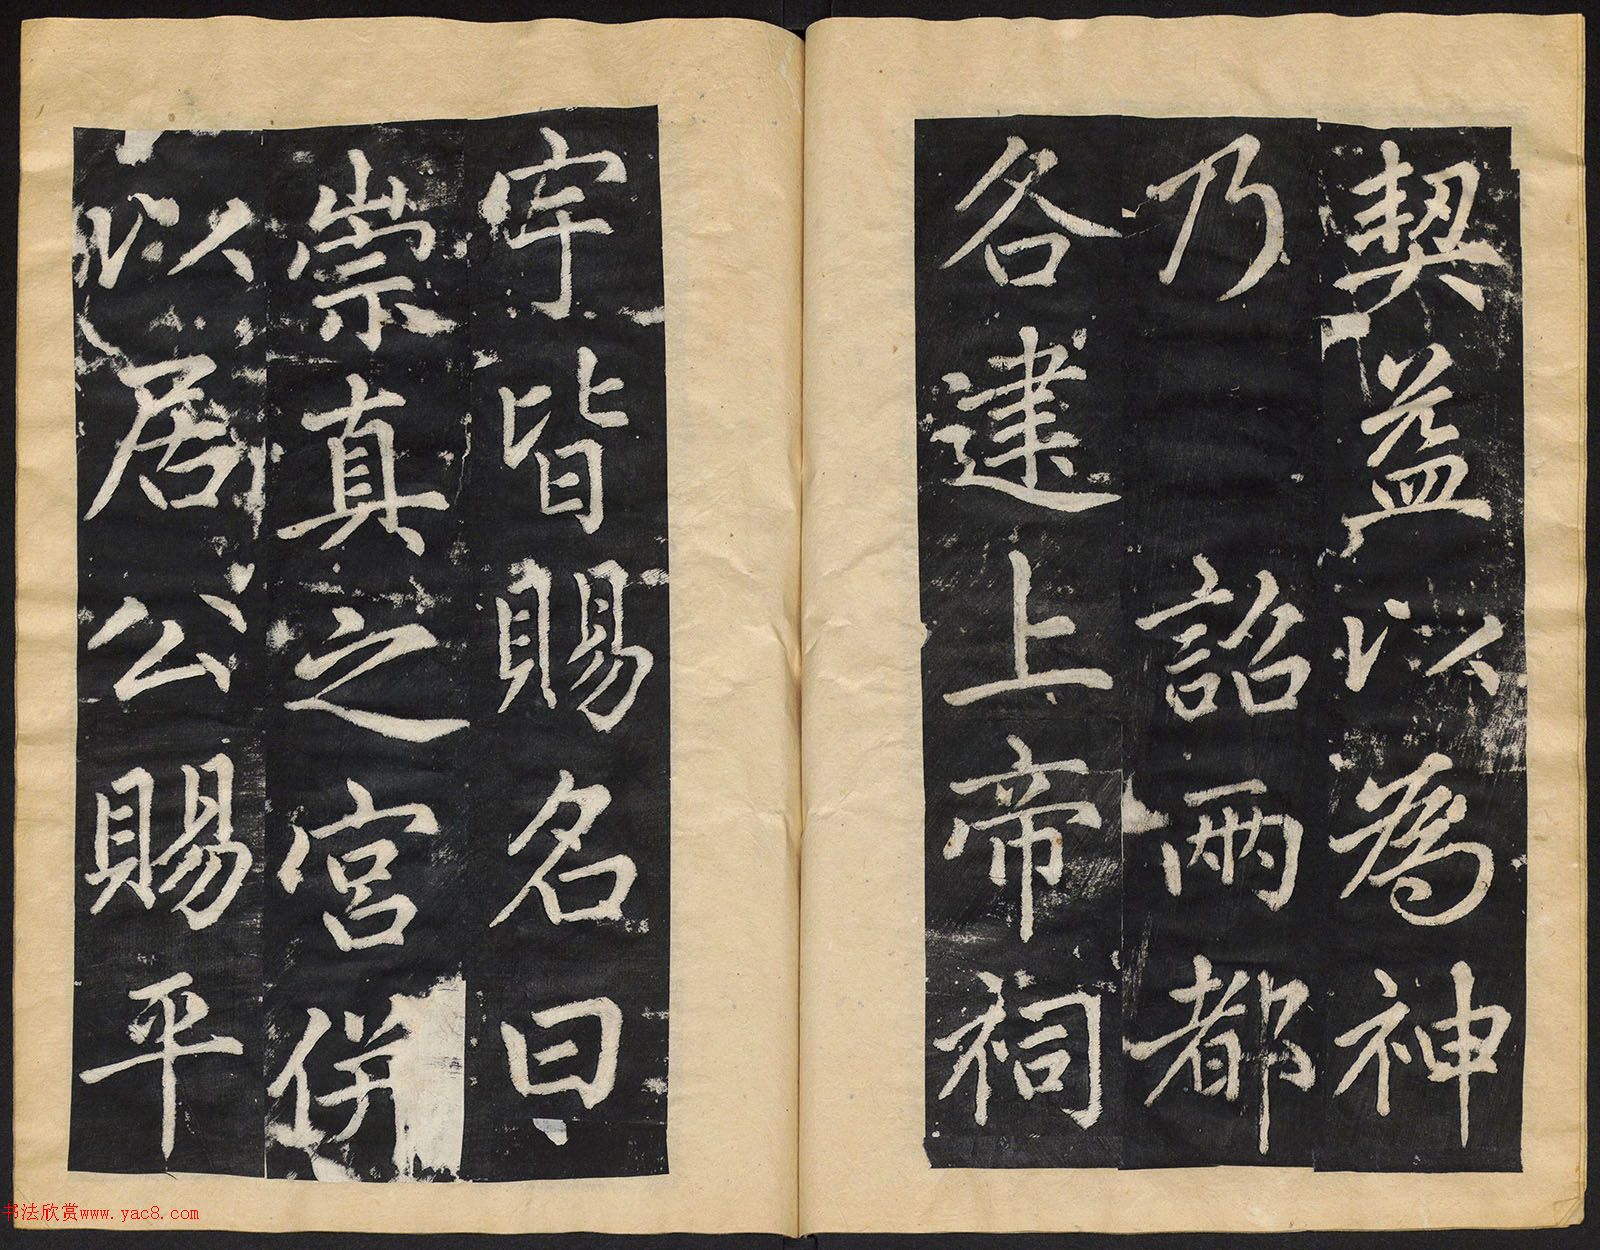 契益以為神
乃 詔兩都
各建上帝祠
宇皆賜名曰
崇真之宮併
以居公賜平
书法欣赏www.yac8.com